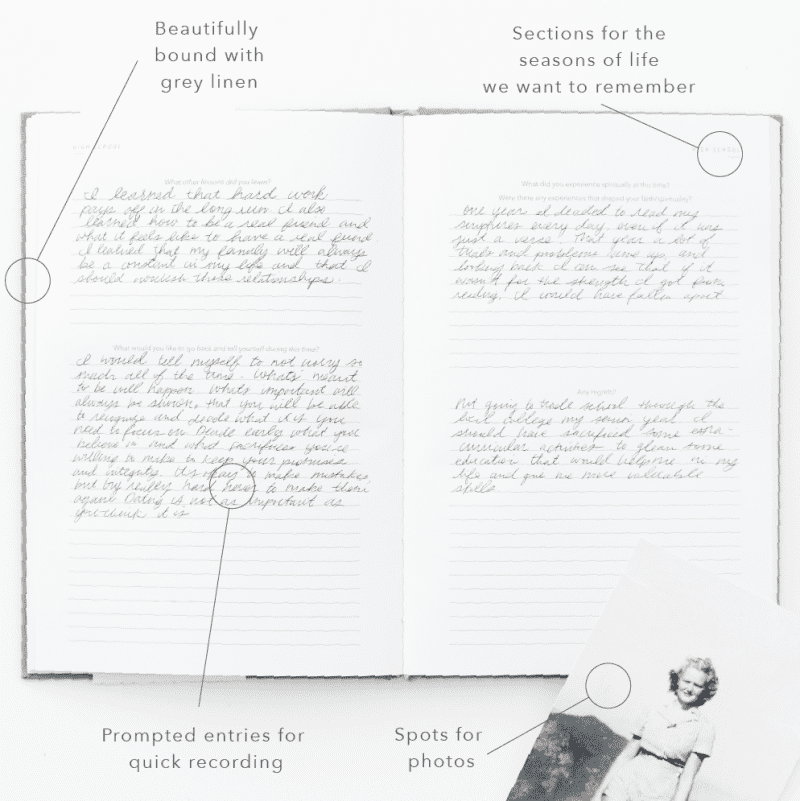 Beautifully
bound with
grey linen
Sections for the
seasons of life
we want to remember
HIGH SCHOOL
What other lessons did you learn?
I learned that hard work
pays off in the long run. I also
learned how to be a real friend and
what it feels like to have a real friend
I learned that my family will always
be a constant in my life and that I
should nourish those relationships.
What would you like to go back and tell yourself during this time?
I would tell myself to not worry so
much all of the time. What's meant
to be will happen. What's important will
always be that you will be able
to recognize and decide what it is you
need to focus on. Decide early what you
believe in and what sacrifices you're
willing to make to keep your promises
and integrity. It's easy to make mistakes
but really hard to make them
again. Dating is not as important as
you think it is
What did you experience spiritually at this time?
Were there any experiences that shaped your faith/spirituality?
One year I decided to read my
scriptures every day, even if it was
just a verse. That year a lot of
trials and problems came up, and
looking back I can see that if it
wasn't for the strength I got from
reading, I would have fallen apart
Any regrets?
Not going to trade school through the
local college my senior year. I
should have sacrificed some extra-
curricular activities to glean some
education that would help me in my
life and give me more
skills
Prompted entries for
quick recording
Spots for
photos